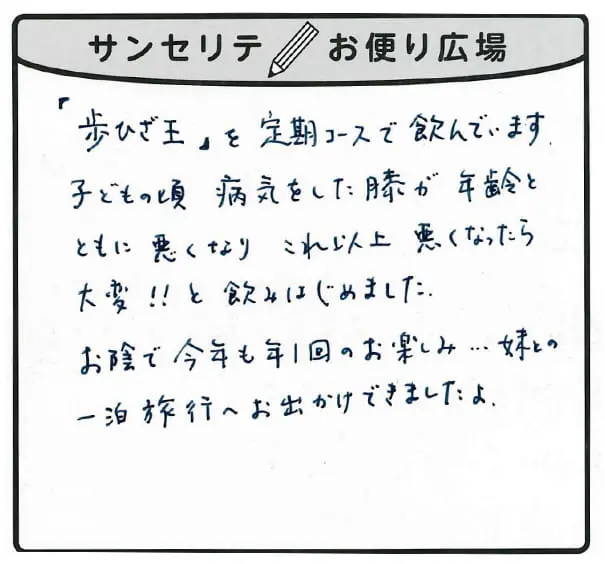 サンセリテ お便り広場
『歩ひざ王』を定期コースで飲んでいます.
子どもの頃 病気をした膝が 年齢と
ともに 悪くなり これ以上 悪くなったら
大変!!と 飲みはじめました.
お陰で 今年も年1回のお楽しみ…妹との
一泊旅行へお出かけできましたよ.